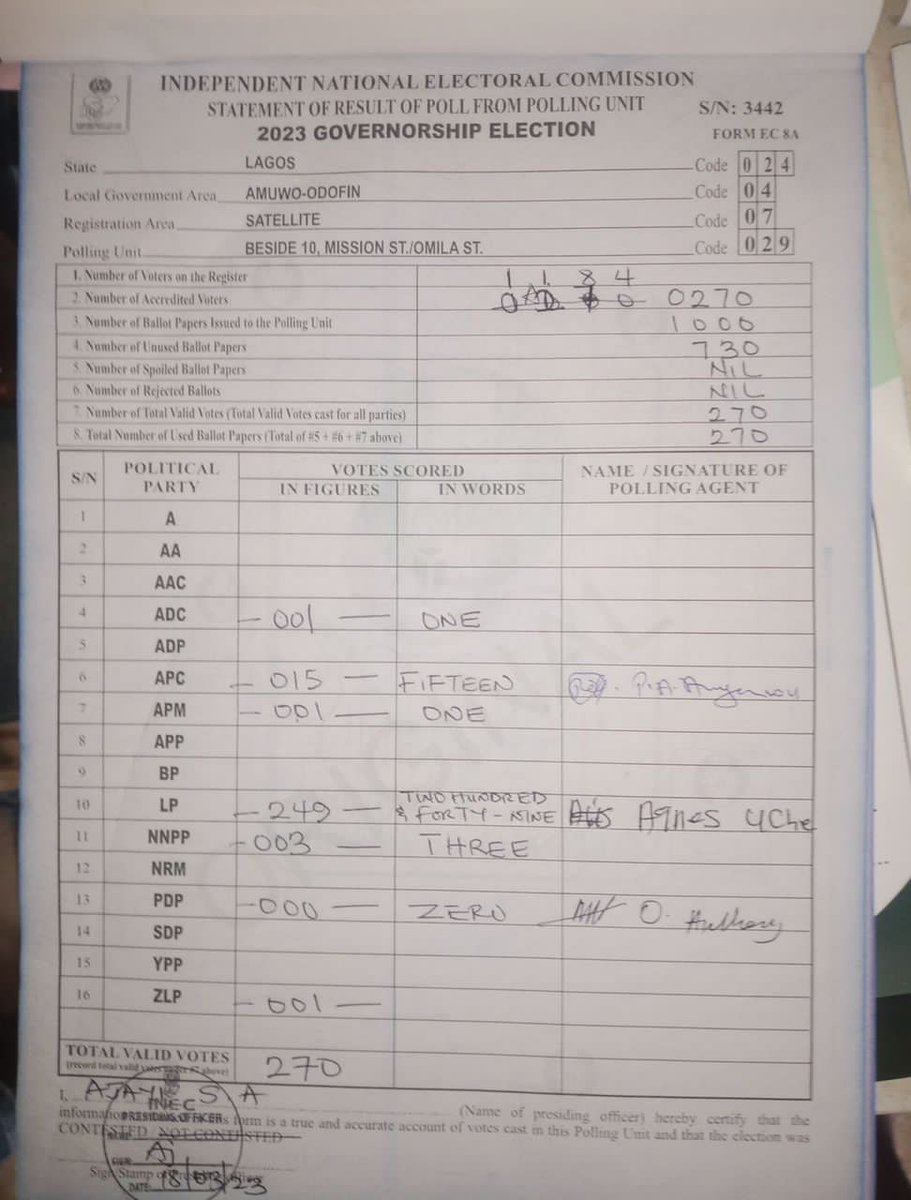 INDEPENDENT NATIONAL ELECTORAL COMMISSION
STATEMENT OF RESULT OF POLL FROM POLLING UNIT S/N: 3442
2023 GOVERNORSHIP ELECTION FORM EC 8A
State LAGOS Code 0 2 4
Local Government Area AMUWO-ODOFIN Code 0 4
Registration Area SATELLITE Code 0 7
Polling Unit BESIDE 10, MISSION ST./OMILA ST. Code 0 2 9
1. Number of Voters on the Register 1 1 8 4
2. Number of Accredited Voters 0270
3. Number of Ballot Papers Issued to the Polling Unit 1000
4. Number of Unused Ballot Papers 730
5. Number of Spoiled Ballot Papers NIL
6. Number of Rejected Ballots NIL
7. Number of Total Valid Votes (Total Valid Votes cast for all parties) 270
8. Total Number of Used Ballot Papers (Total of #5 + #6 + #7 above) 270
S/N POLITICAL PARTY VOTES SCORED NAME / SIGNATURE OF POLLING AGENT
IN FIGURES IN WORDS
1 A
2 AA
3 AAC
4 ADC - 001 — ONE
5 ADP
6 APC - 015 - FIFTEEN P.A.
7 APM - 001 — ONE
8 APP
9 BP
10 LP - 249 — TWO HUNDRED & FORTY-NINE Agnes Uche
11 NNPP - 003 — THREE
12 NRM
13 PDP - 000 — ZERO O. Anthony
14 SDP
15 YPP
16 ZLP - 001 —
TOTAL VALID VOTES 270
(record total valid votes as per #7 above)
I, AJAYI S A
INEC
(Name of presiding officer) hereby certify that the
PRESIDING OFFICER
information form is a true and accurate account of votes cast in this Polling Unit and that the election was
CONTESTED NOT CONTESTED
Sign/Stamp of
DATE: 18/03/23